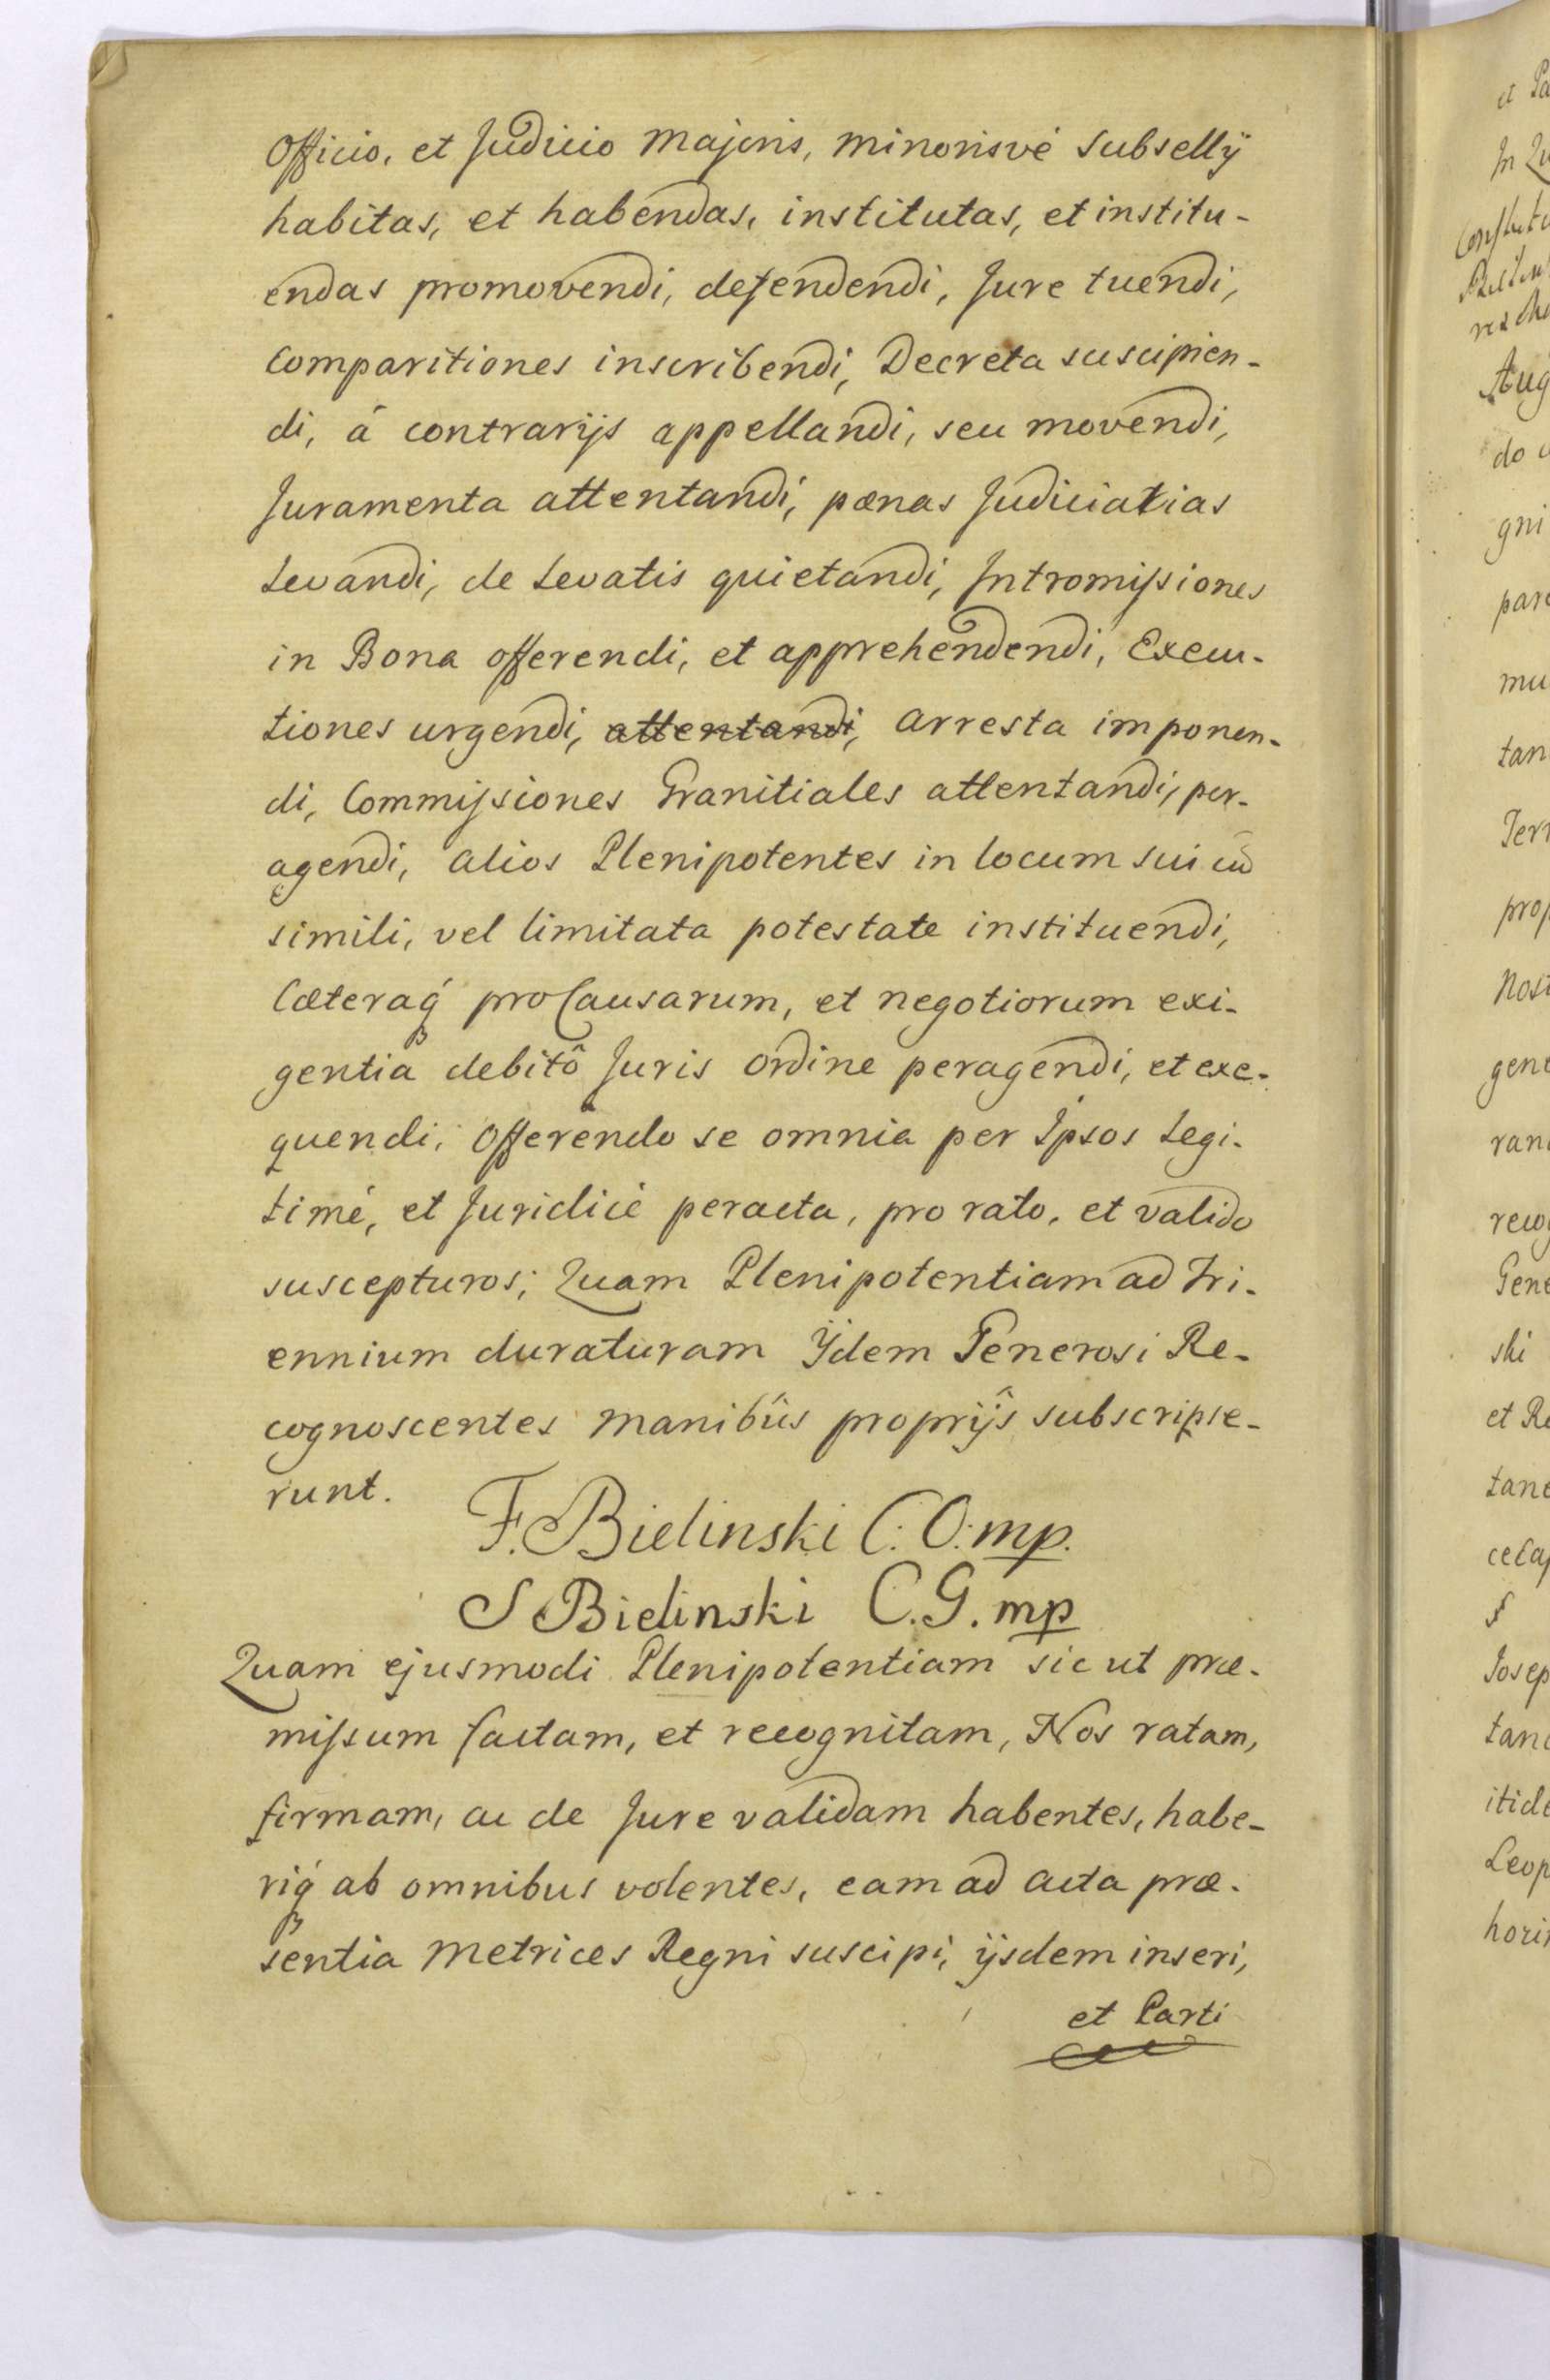 Officio, et Judicio Majoris, minorisvé Subsellÿ
habitas, et habendas, institutas, et institu-
endas promovendi, defendendi, Jure tuendi,
Comparitiones inscribendi, Decreta suscipien-
di, á contrarÿs appellandi, seu movendi,
Juramenta attentandi, pænas Judiciarias
Levandi, de Levatis quietandi, Intromissiones
in Bona offerendi, et apprehendendi, Execu-
tiones urgendi, attentandi, arresta imponen-
di, Commissiones Granitiales attentandi, per-
agendi, alios Plenipotentes in locum sui cū
simili, vel limitata potestate instituendi,
Cæteraq́ pro Causarum, et negotiorum exi-
gentia debitô Juris ordine peragendi, et exe-
quendi; Offerendo se omnia per Ipsos Legi-
timé, et Juridicé peracta, pro rato, et valido
suscepturos; Quam Plenipotentiam ad tri-
ennium duraturam Ÿdem Generosi Re-
cognoscentes manibûs proprÿs subscripse-
runt.
F. Bielinski C: O: mp.
S Bielinski C. G. mp
Quam ejusmodi Plenipotentiam sic ut præ-
missum factam, et recognitam, Nos ratam,
firmam, ac de Jure validam habentes, habe-
riq́ ab omnibus volentes, eam ad acta præ-
sentia Metrices Regni suscipi, ÿsdem inseri,
et Parti